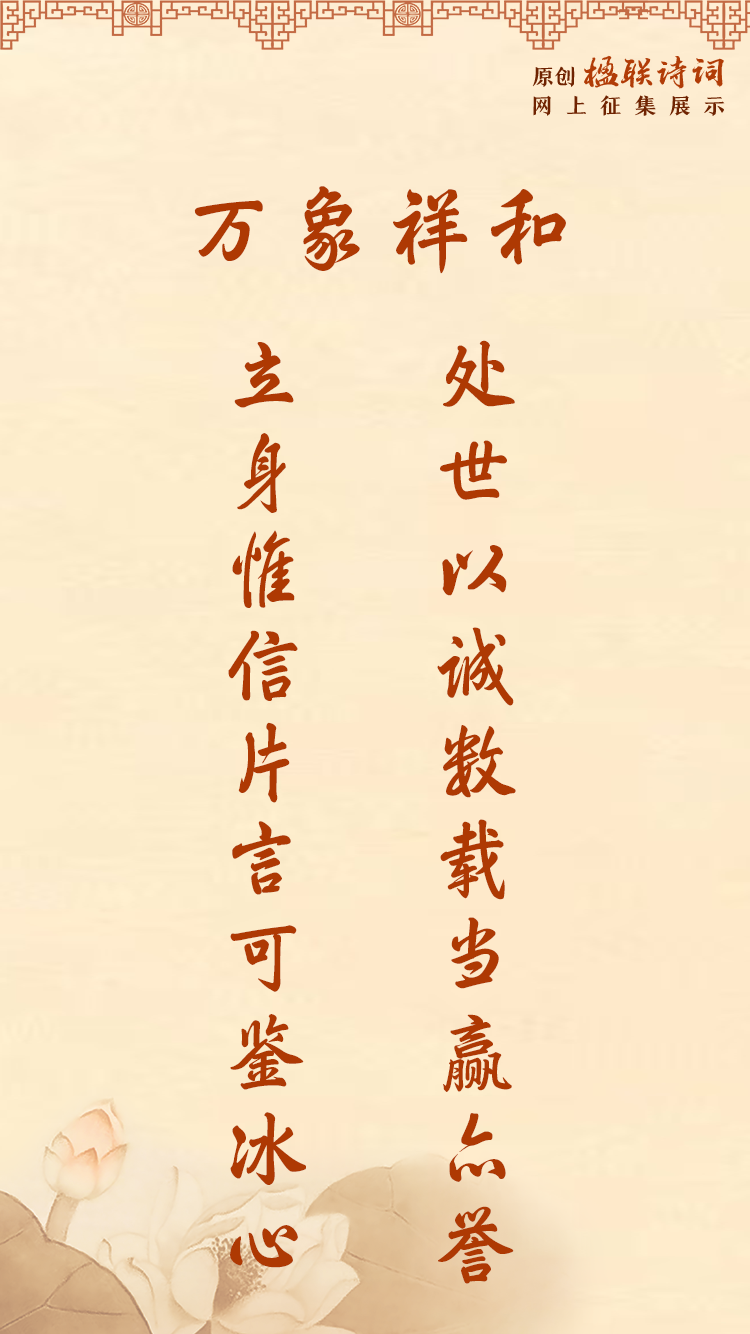 原创 楹联诗词
网上征集展示
万象祥和
处世以诚数载当赢誉
立身惟信片言可鉴冰心